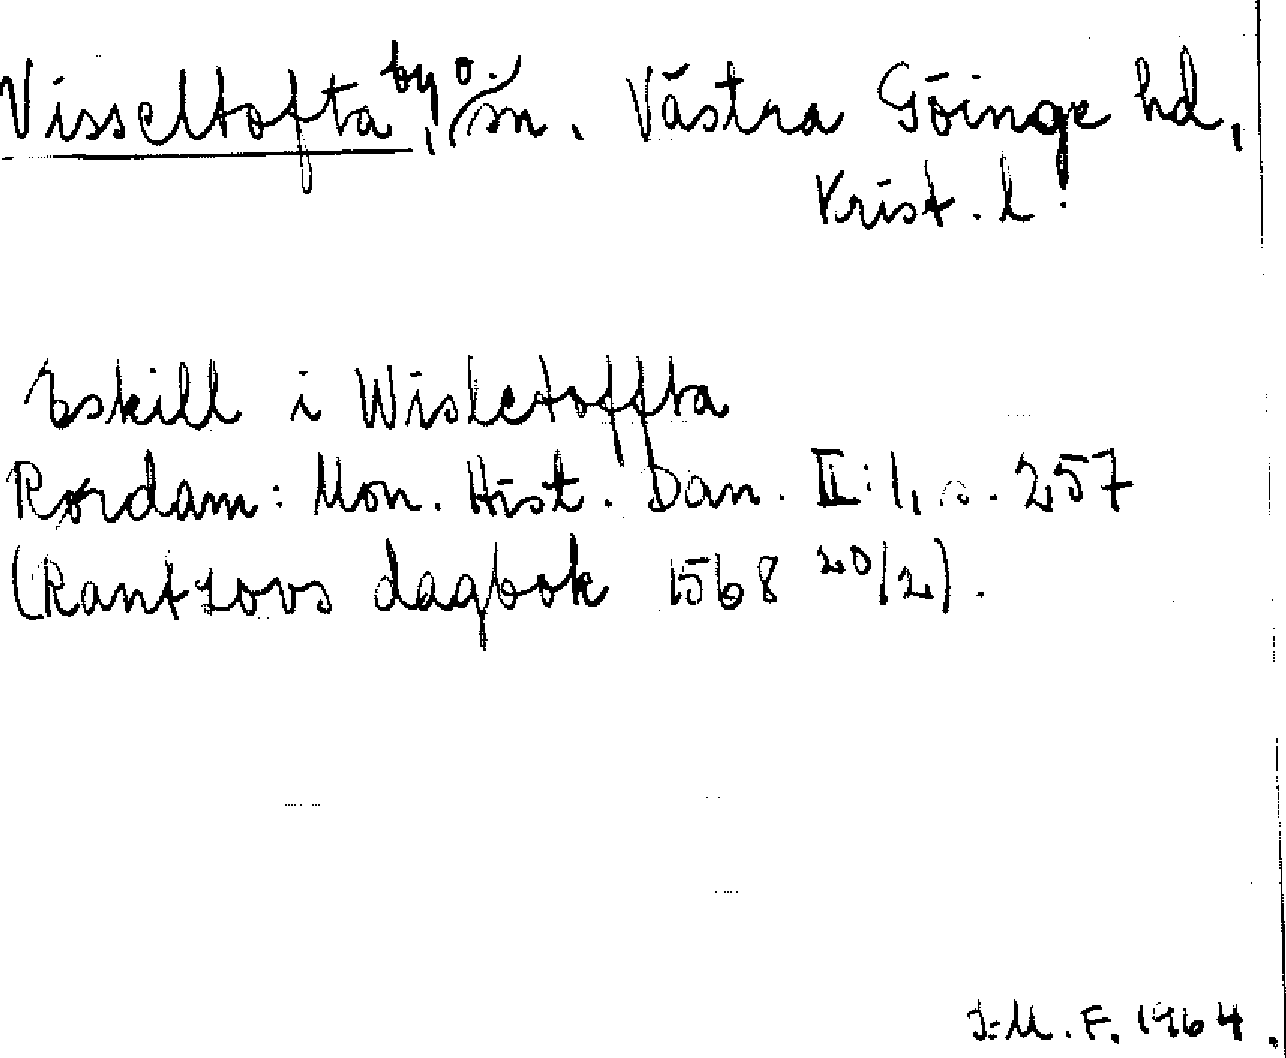 Visseltofta, by o. sn. Västra Göinge hd,
Krist. l.
Eskill i Wisletoffta
Rørdam: Mon. Hist. Dan. II:1, s. 257
(Rantzovs dagbok 1568 20/2).
J-M. F. 1964.